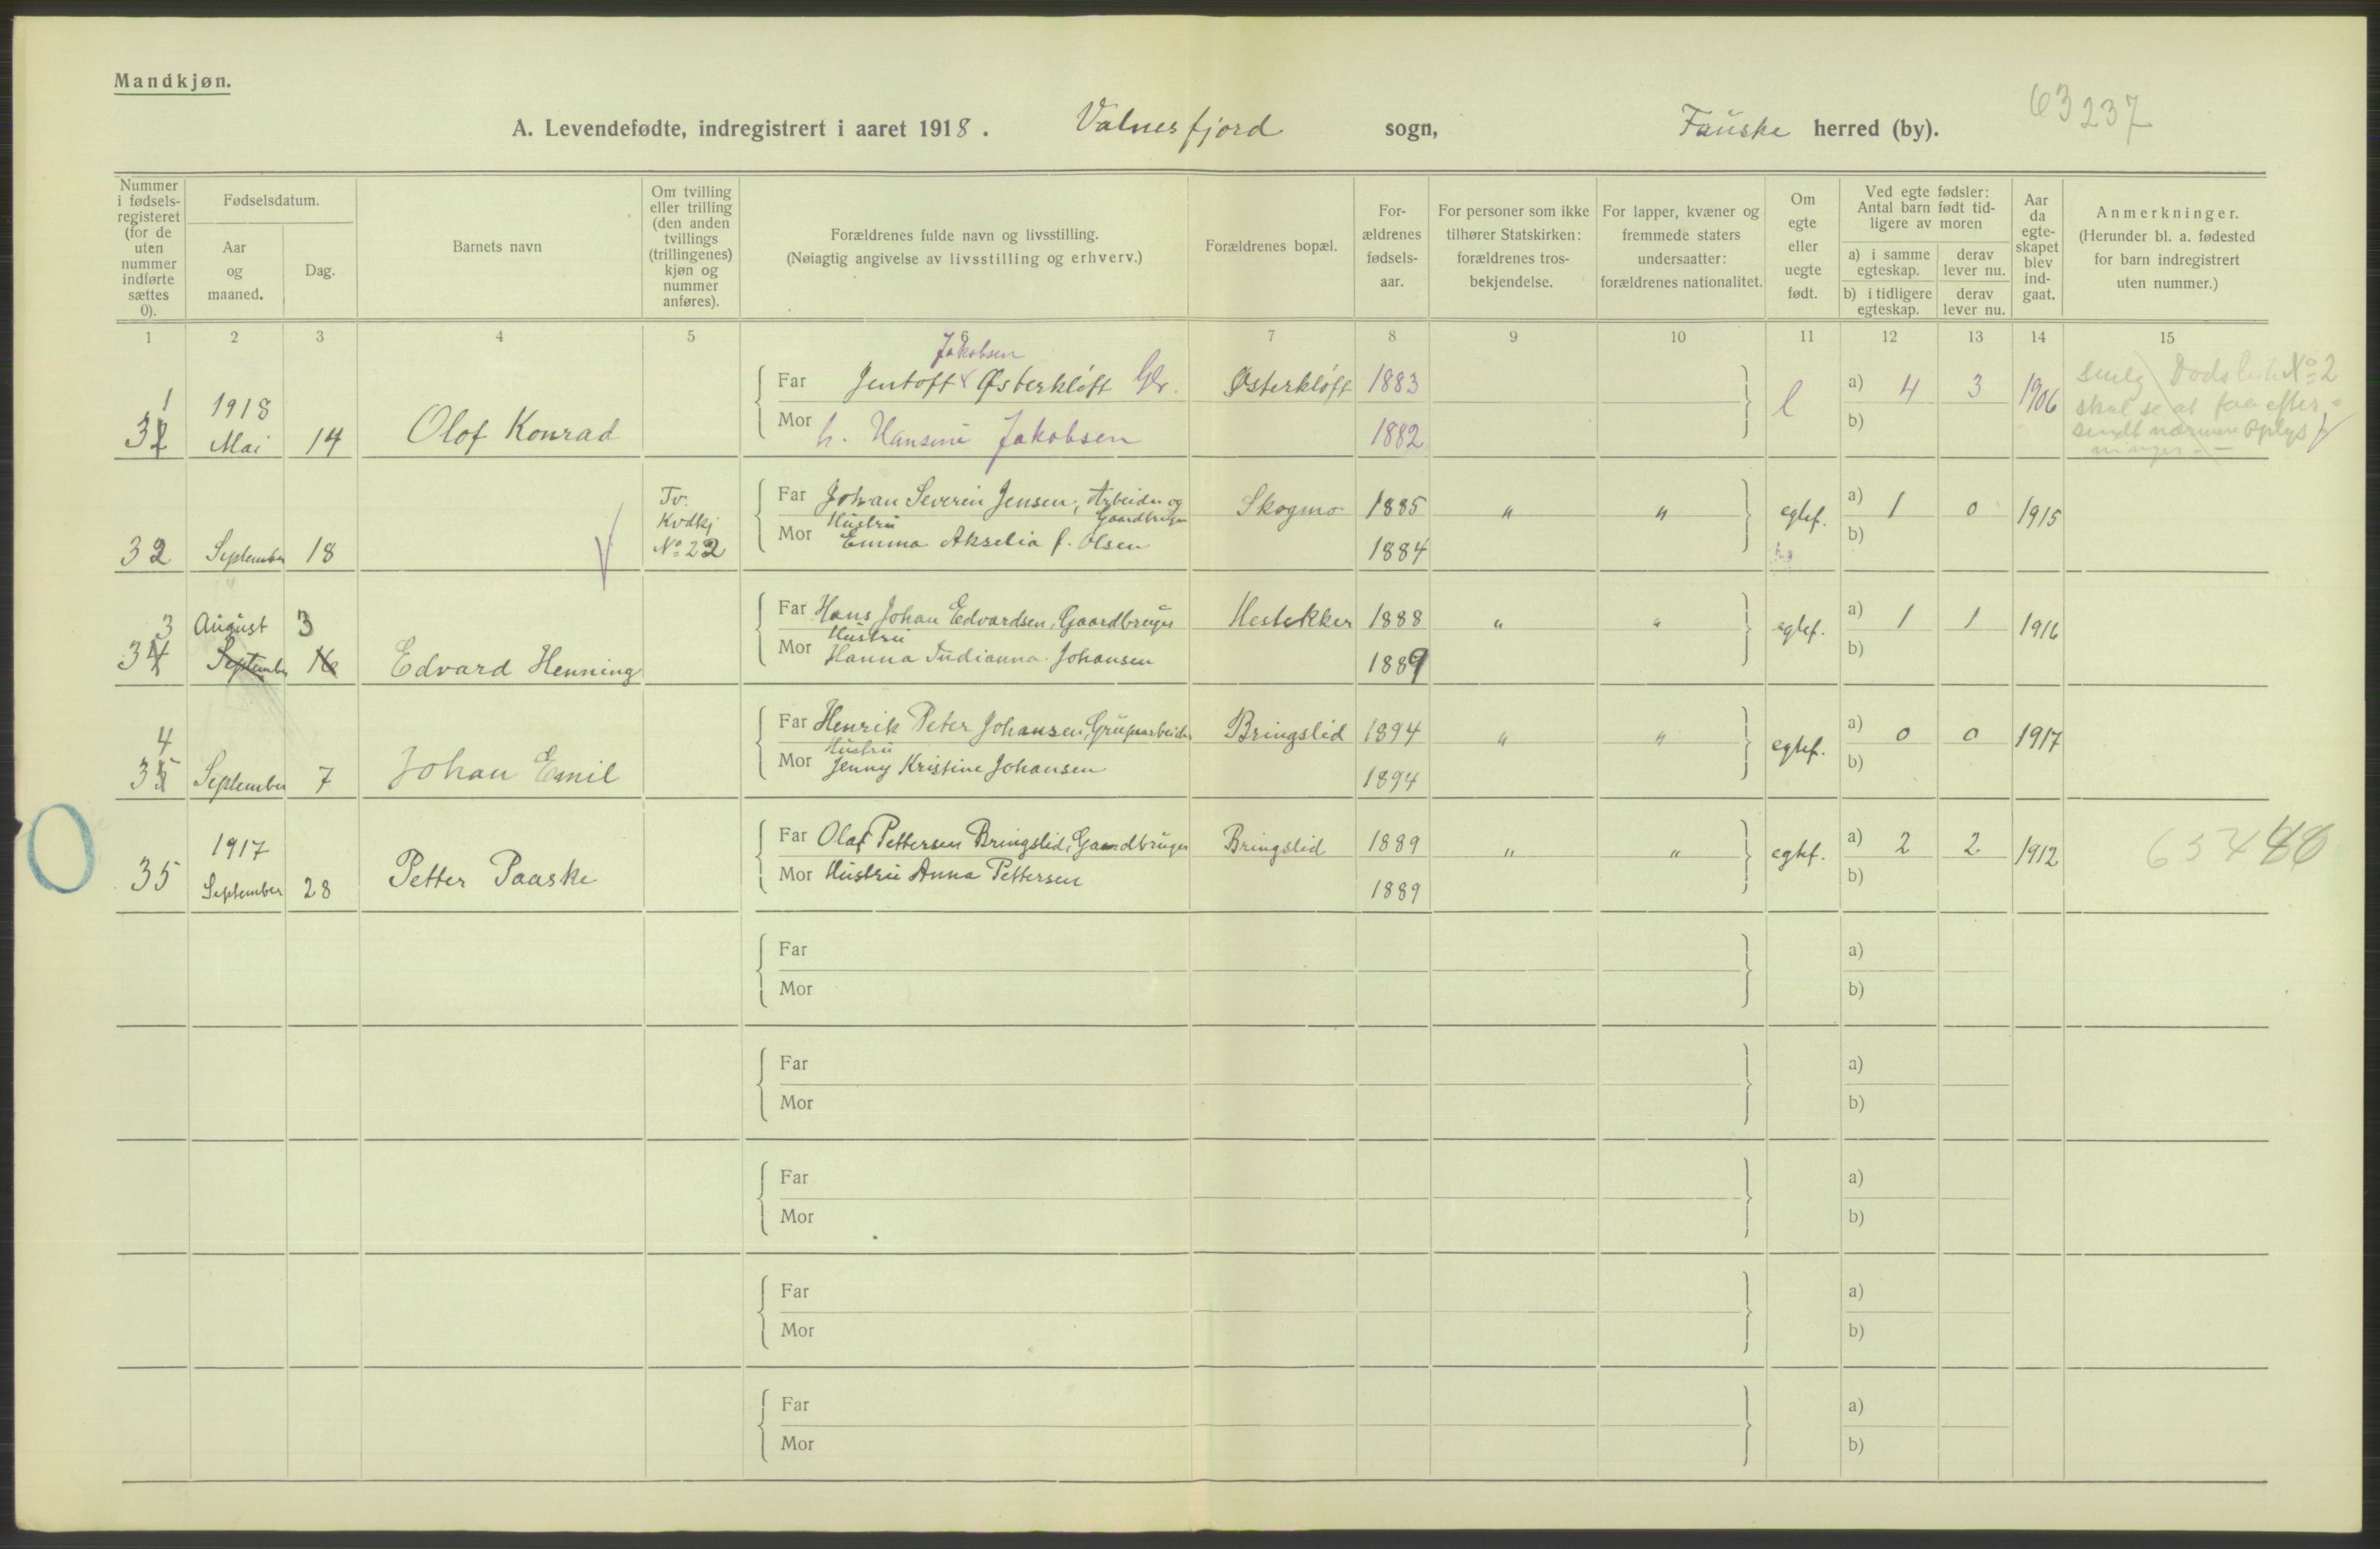 Mandkjøn.
A. Levendefødte, indregistrert i aaret 1918. Valnesfjord sogn, Fauske herred (by).
63237
Nummer i fødsels-registeret (for de uten nummer indførte sættes 0).
Fødselsdatum.
Aar og maaned.
Dag.
Barnets navn
Om tvilling eller trilling (den anden tvillings (trillingenes) kjøn og nummer anføres).
Forældrenes fulde navn og livsstilling.
(Nøiagtig angivelse av livsstilling og erhverv.)
Forældrenes bopæl.
For-ældrenes fødsels-aar.
For personer som ikke tilhører Statskirken: forældrenes tros-bekjendelse.
For lapper, kvæner og fremmede staters undersaatter: forældrenes nationalitet.
Om egte eller uegte født.
Ved egte fødsler: Antal barn født tid-ligere av moren
a) i samme egteskap.
derav lever nu.
b) i tidligere egteskap.
derav lever nu.
Aar da egte-skapet blev ind-gaat.
Anmerkninger.
(Herunder bl. a. fødested for barn indregistrert uten nummer.)
1 2 3 4 5 6 7 8 9 10 11 12 13 14 15
Jakobsen
Far Jentoft Østerkløft Gbr. Østerkløft 1883 a) 4 3 1906
1
31 1918 Mai 14 Olof Konrad
Mor h. Hansine Jakobsen 1882 b)
Dødsliste No 2
skal se at faa efter-
sendt nærmere Oplys
Tv. Kvdkj No 22
Far Johan Severin Jensen, Arbeider og Gaardbruger Skogmo 1885 " " egtef. a) 1 0 1915
32 September 18
Mor Hustru Emma Akselia f. Olsen 1884 b)
3 August 3
Far Hans Johan Edvardsen, Gaardbruger Hestekker 1888 " " egtef. a) 1 1 1916
34 September 16 Edvard Henning
Mor Hustru Hanna Indianna Johansen 1889 b)
4
Far Henrik Peter Johansen, Grubearbeider Bringslid 1894 " " egtef. a) 0 0 1917
35 September 7 Johan Emil
Mor Hustru Jenny Kristine Johansen 1894 b)
1917
Far Olaf Pettersen Bringslid, Gaardbruger Bringslid 1889 " " egtef. a) 2 2 1912
35 September 28 Petter Paaske
Mor Hustru Anna Pettersen 1889 b)
Far a)
Mor b)
Far a)
Mor b)
Far a)
Mor b)
Far a)
Mor b)
Far a)
Mor b)